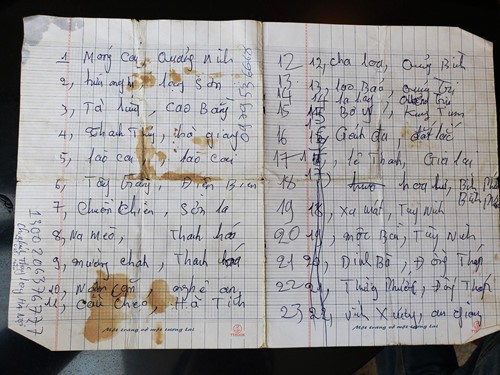 1 Móng Cái, Quảng Ninh
2, hữu nghị, lạng Sơn
3, Tà lùng, Cao Bằng
4, Thanh Thủy, hà giang
5, lào cai, lào cai
6, Tây trang, Điện Biên
7, Chiềng Khương, Sơn la
8, Na mèo, Thanh hoá
9, Thanh hoá
10, Nậm cắn, nghệ an
11, cầu treo, Hà Tĩnh
Một trang vở một tương lai
12 12, cha lo, Quảng Bình
13 13, lao Bảo, quảng Trị
14 14 la lay, quảng trị
15 15 Bờ Y, Kon Tum
16 16, đắk lắk
17 17, lệ Thanh, Gia lai
18 17, hoa lư, Bình Phước
19 18, Xa mát, Tây Ninh
20 19, mộc Bài, Tây Ninh
21 20, Dinh Bà, Đồng Tháp
22 21, Thường Phước, Đồng Tháp
23 22, vĩnh Xương, an giang
Một trang vở một tương lai